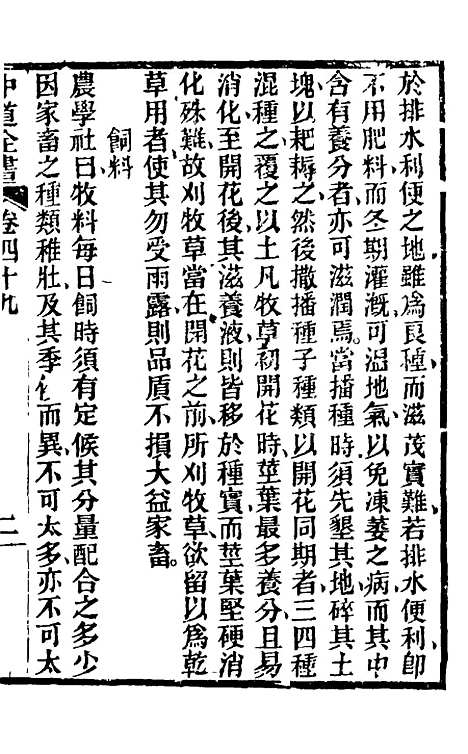 於排水利便之地雖爲良種而滋茂實難若排水便利卽
不用肥料而冬期灌漑可溫地氣以免凍萎之病而其中
含有養分者亦可滋潤焉當播種時須先墾其地碎其土
塊以耙耨之然後撒播種子種類以開花同期者三四種
混種之覆之以土凡牧草初開花時莖葉最多養分且易
消化至開花後其滋養液則皆移於種實而莖葉堅硬消
化殊難故刈牧草當在開花之前所刈牧草欲留以爲乾
草用者使其勿受雨露則品質不損大益家畜
飼料
農學社曰牧料每日飼時須有定候其分量配合之多少
因家畜之種類稚壯及其季候而異不可太多亦不可太
道全書 卷四十九 二